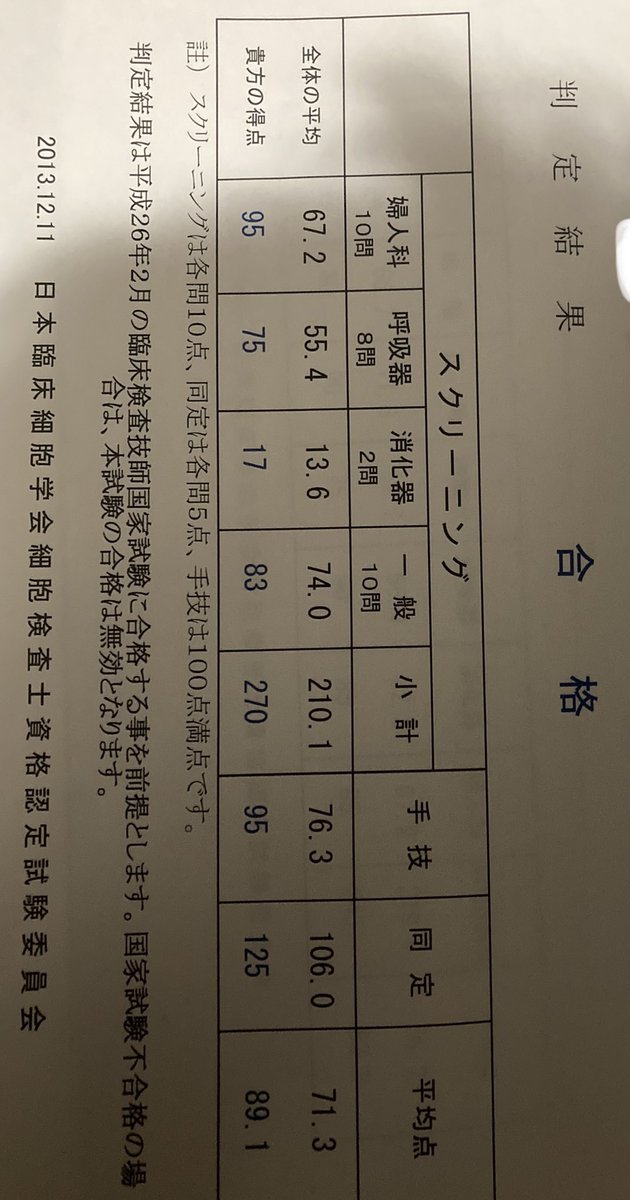 判定結果 合格
スクリーニング 手技 同定 平均点
婦人科 呼吸器 消化器 一般 小計
10問 8問 2問 10問
全体の平均 67.2 55.4 13.6 74.0 210.1 76.3 106.0 71.3
貴方の得点 95 75 17 83 270 95 125 89.1
註）スクリーニングは各問10点、同定は各問5点、手技は100点満点です。
判定結果は平成26年2月の臨床検査技師国家試験に合格する事を前提とします。国家試験不合格の場
合は、本試験の合格は無効となります。
2013.12.11 日本臨床細胞学会細胞検査士資格認定試験委員会